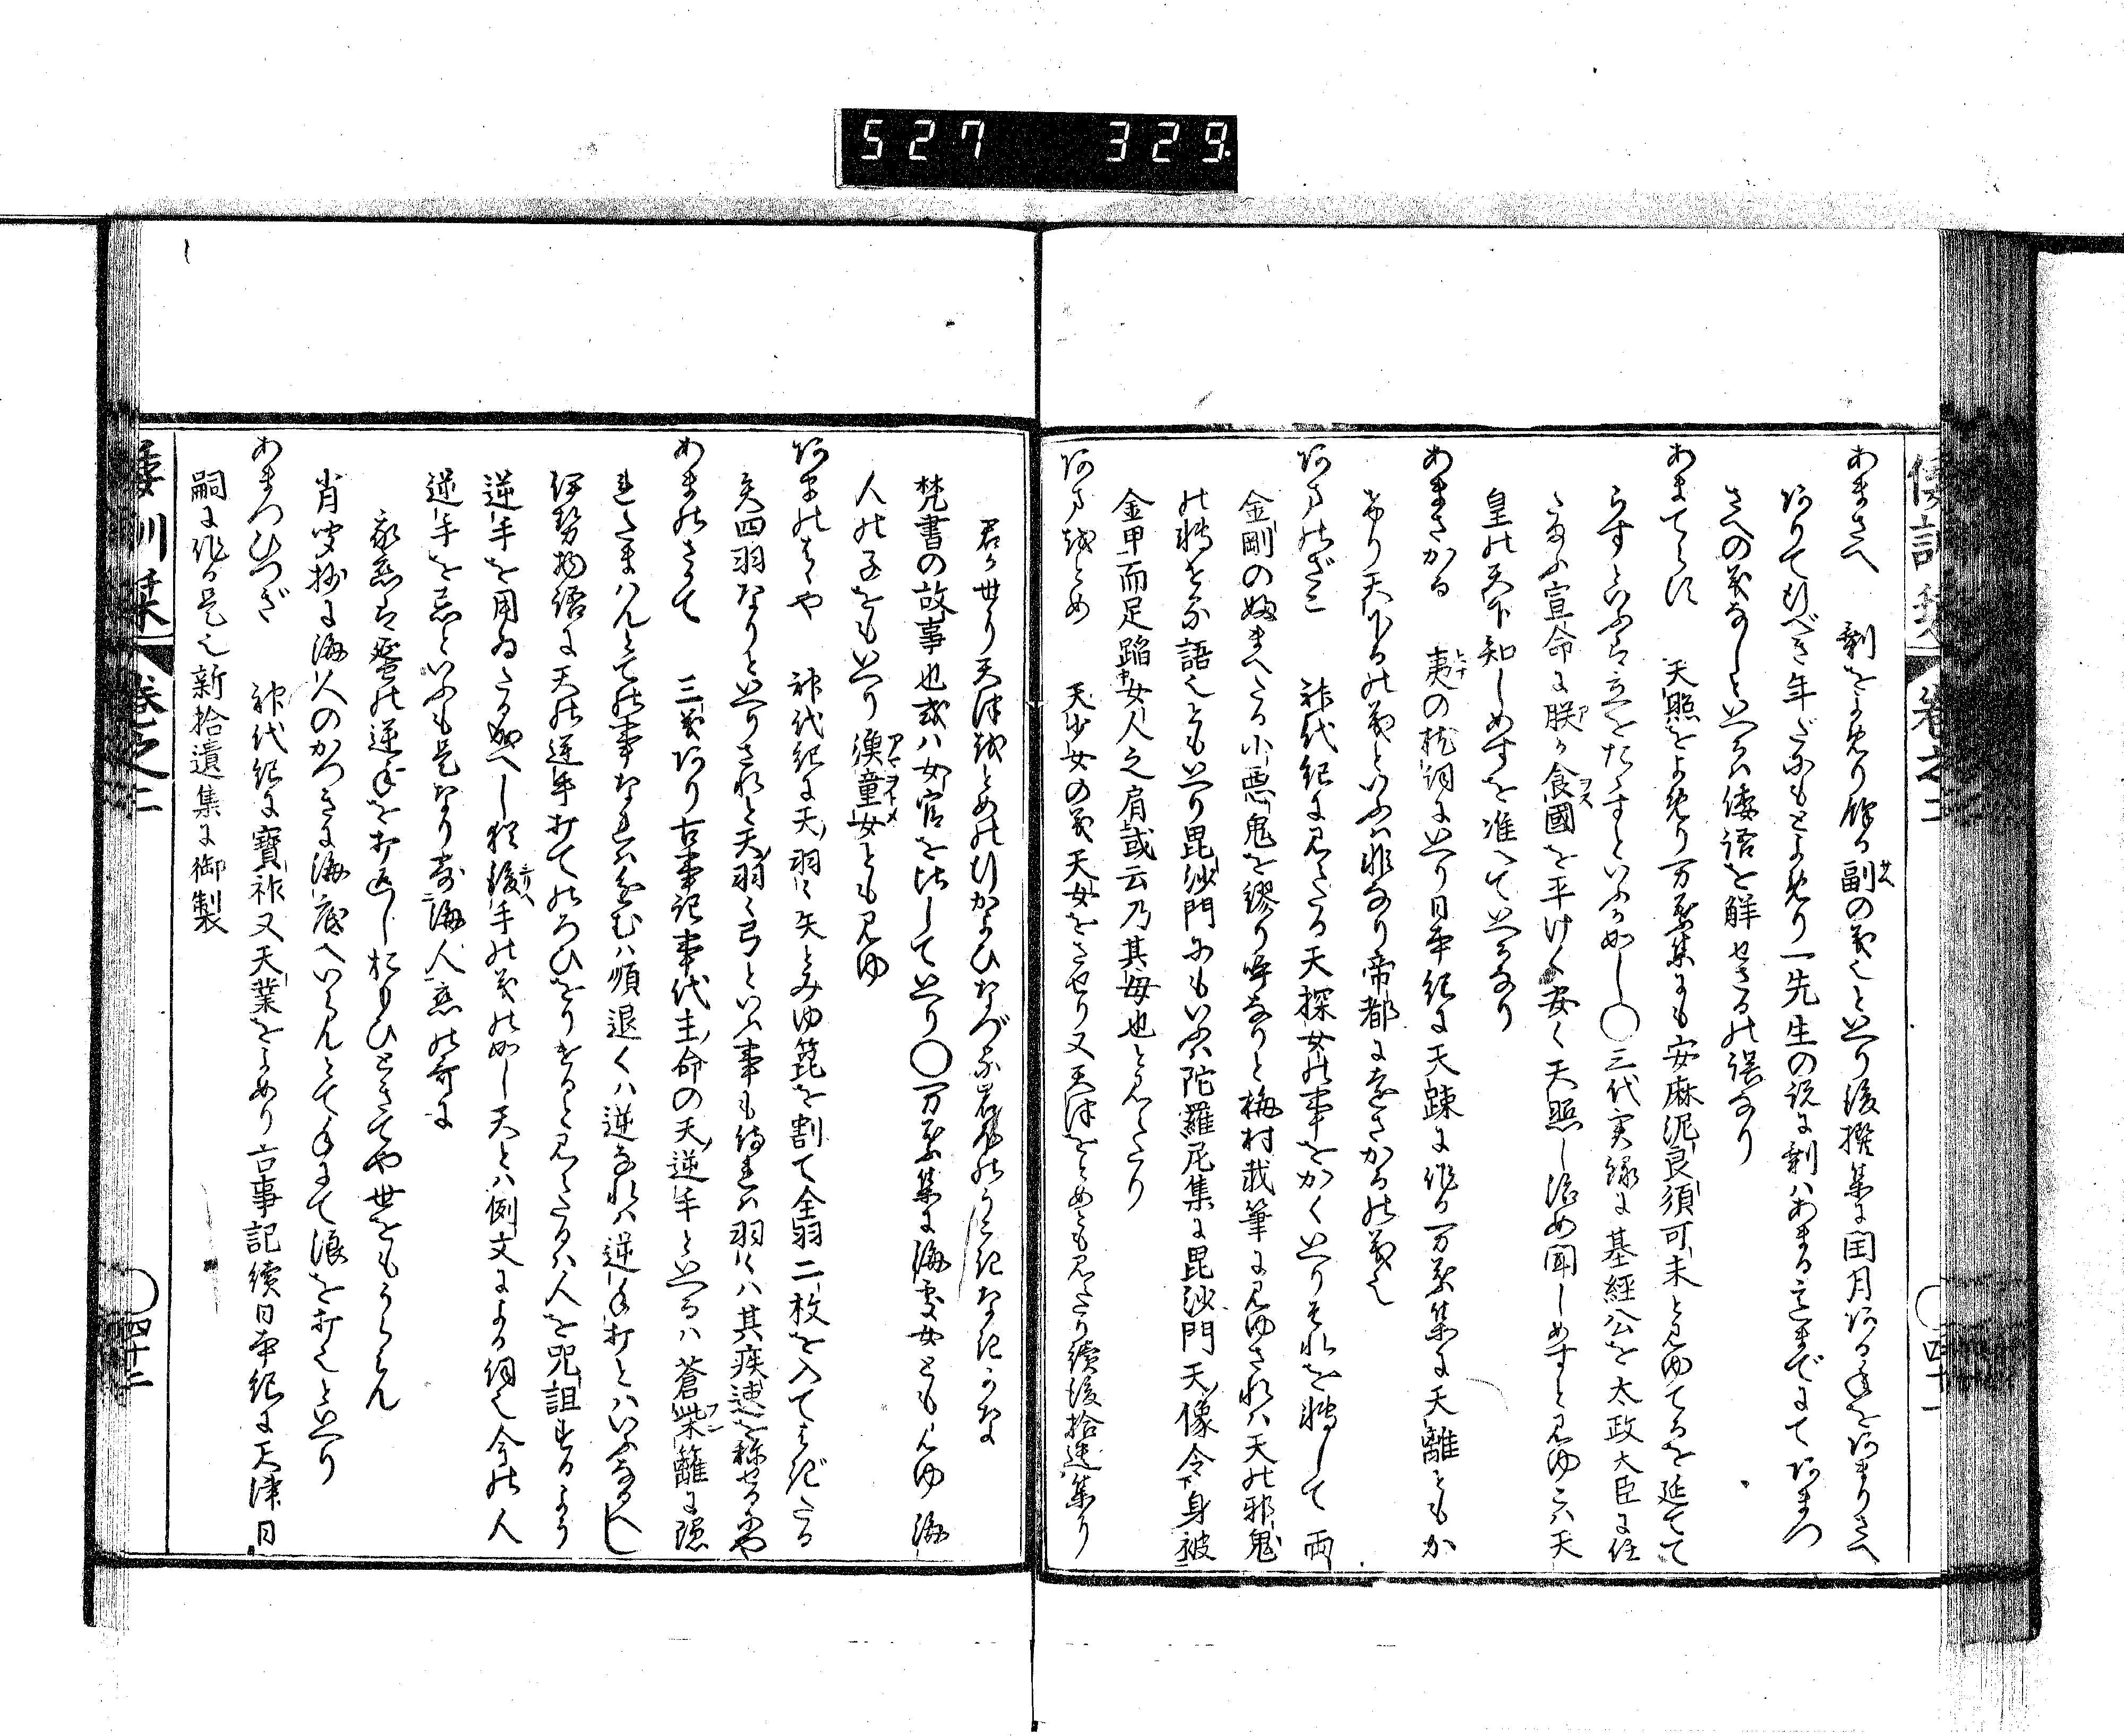 527 329
倭訓栞 巻之二 ○四十一
あまさへ 剰をよめり餘り副の義也といへり後撰集に閏月ある年をあまりさへ
ありて行べき年だにもとよめり一先生の説に剰はあまる之までにてあまつ
さへの義なしといへるは倭語を解せさるの誤なり
あまてらす 天照をよめり万葉集にも安麻泥良須可未と見ゆてるを延てて
らすといふは立をたゝすといふか如し○三代実録に基経公を太政大臣に任
たまふ宣命に朕か食國を平けく安く天照し治め聞しめすと見ゆこは天
皇の天下知しめすを准へていへるなり
あまさかる 夷の枕詞にいへり日本紀に天疎に作り万葉集に天離ともか
けり天下るの義といふは非なり帝都に遠さかるの義也
あまのざこ 神代紀に見えたる天探女の事をかくいへりそれを轉して両
金剛の婦まへたる小悪鬼を繆り呼なりと梅村載筆に見ゆされは天の邪鬼
の轉せる語也ともいへり毘沙門にもいふは陀羅尼集に毘沙門天像令下身被
金甲而足踏中女人之肩上或云乃其母也と見えたり
あまをとめ 天少女の義天女をさせり又天津をとめとも見えたり續後拾遺集り
君か世り天津をとめの行かよひなづる岩根のうこきなきかな
梵書の故事也或は女官を比していへり○万葉集に海處女とも見ゆ 海
人の子をもいへり 漁童女とも見ゆ
あまのはや 神代紀に天羽々矢とみゆ箆を割て全羽二枚を入てはぎたる
矢四羽なりといへりされと天羽々弓といふ事も侍れは羽々は其疾速を称せるにや
あまのさかて 三義あり古事記事代主命の天逆手といへるは蒼柴籬に隠
れたまはんとての事なれは進むは順退くは逆なれは逆手打とはいふなるへし
伊勢物語に天の逆手打てのろひをりけると見えたるは人を呪詛するよう
逆手を用ゐたる成へし猶後手の義の如し天とは例文による詞也今の人
逆手を忌といふも是なり寄海人恋の哥に
我恋は蜑の逆手を打返し おもひときてや世をもうらみん
肖聞抄に海人のかつきに海底へいらんとて手にて浪を打也といへり
あまつひつぎ 神代紀に寶祚又天業をよめり古事記續日本紀に天津日
嗣に作る是也新拾遺集に御製
倭訓栞 巻之二 ○四十二